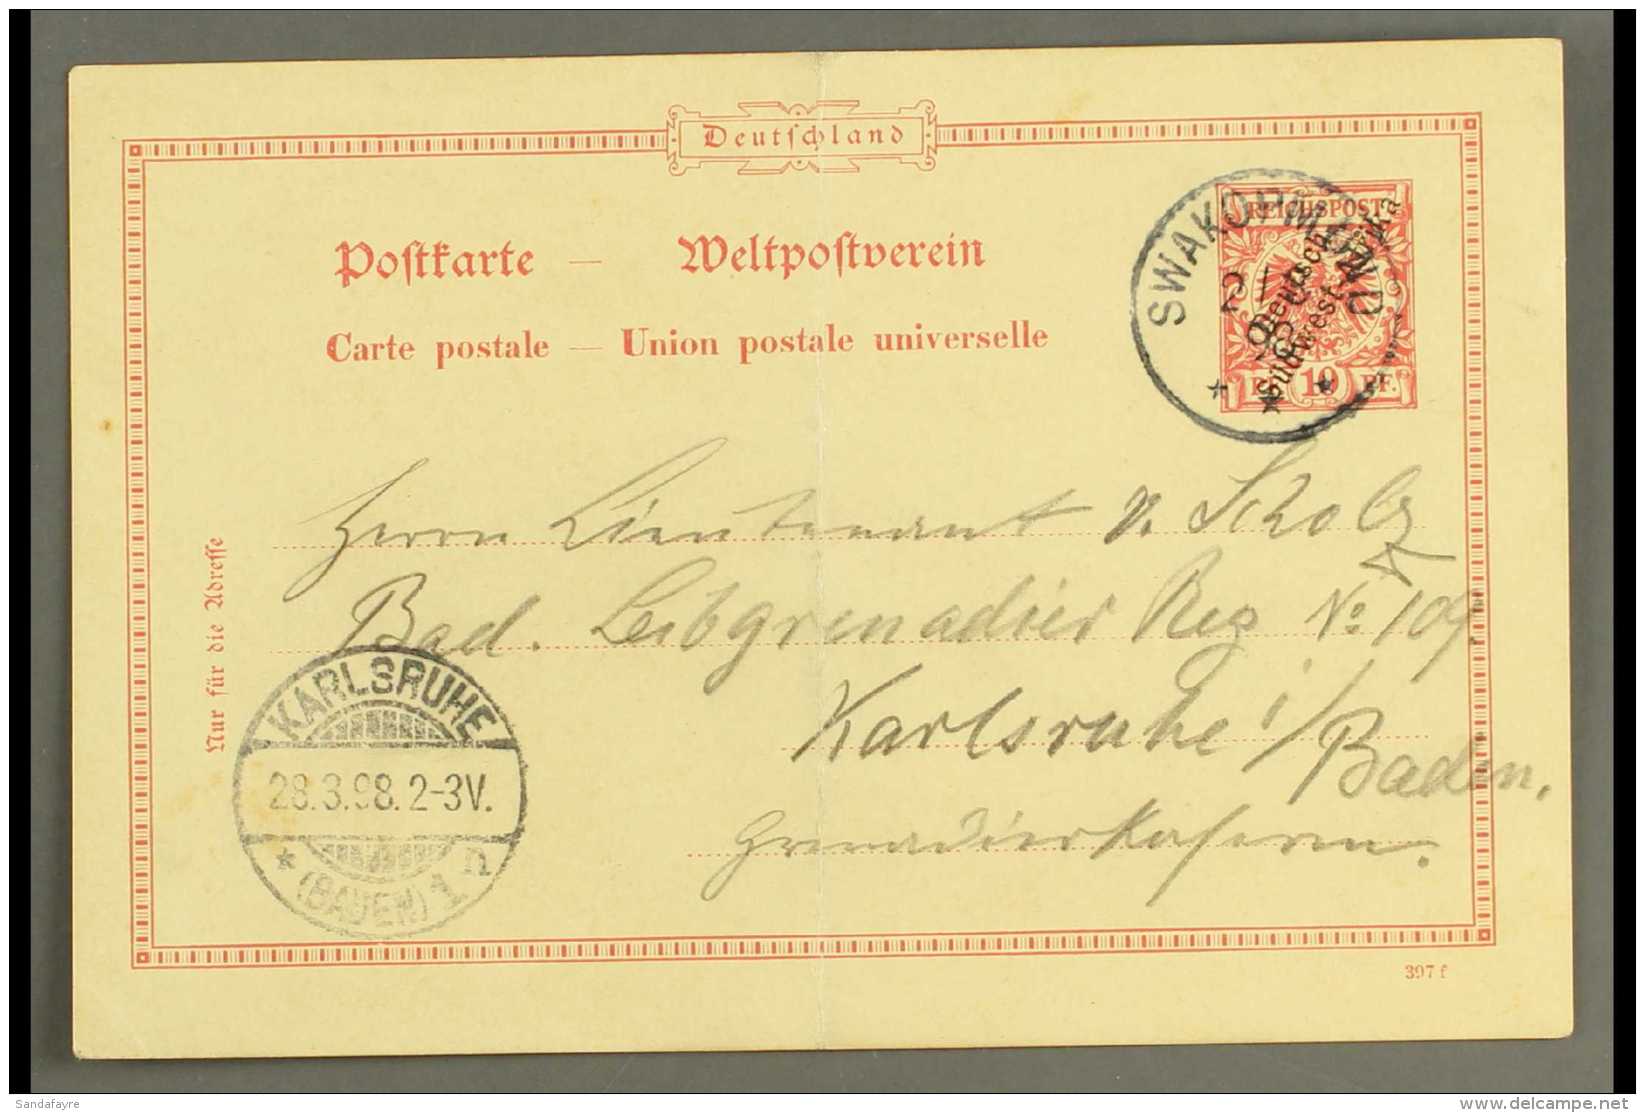 Deutschland
Postkarte — Weltpostverein
Carte postale — Union postale universelle
REICHSPOST
Deutsch-
Südwest-
10 PF.
SWAKOPMUND
98
Herrn Lieutenant v. Scholz
Bad. Leibgrenadier Reg No 109
Karlsruhe i/Baden.
Grenadierkaserne.
Nur für die Adresse
KARLSRUHE
28.3.98.2-3V.
(BADEN) 1 n
397 f
Sandafayre
delcampe.net